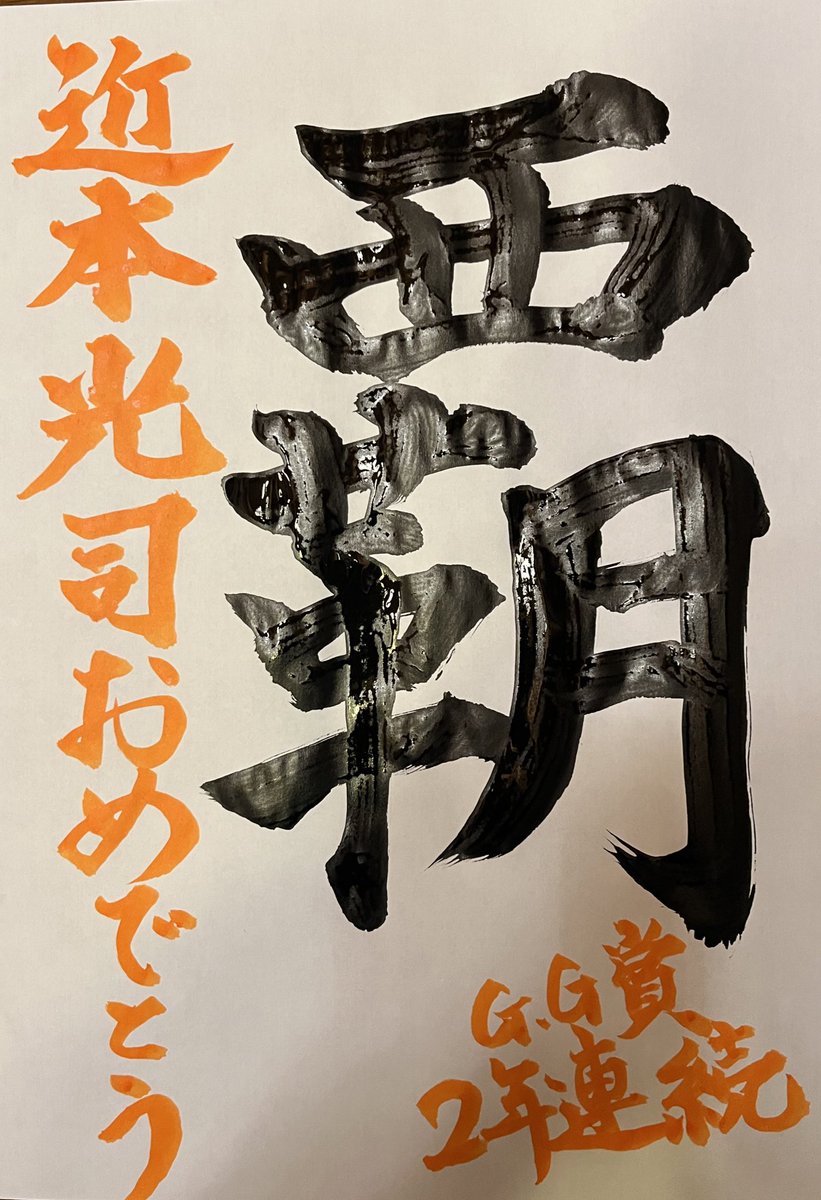 覇
近本光司おめでとう
G.G賞
2年連続